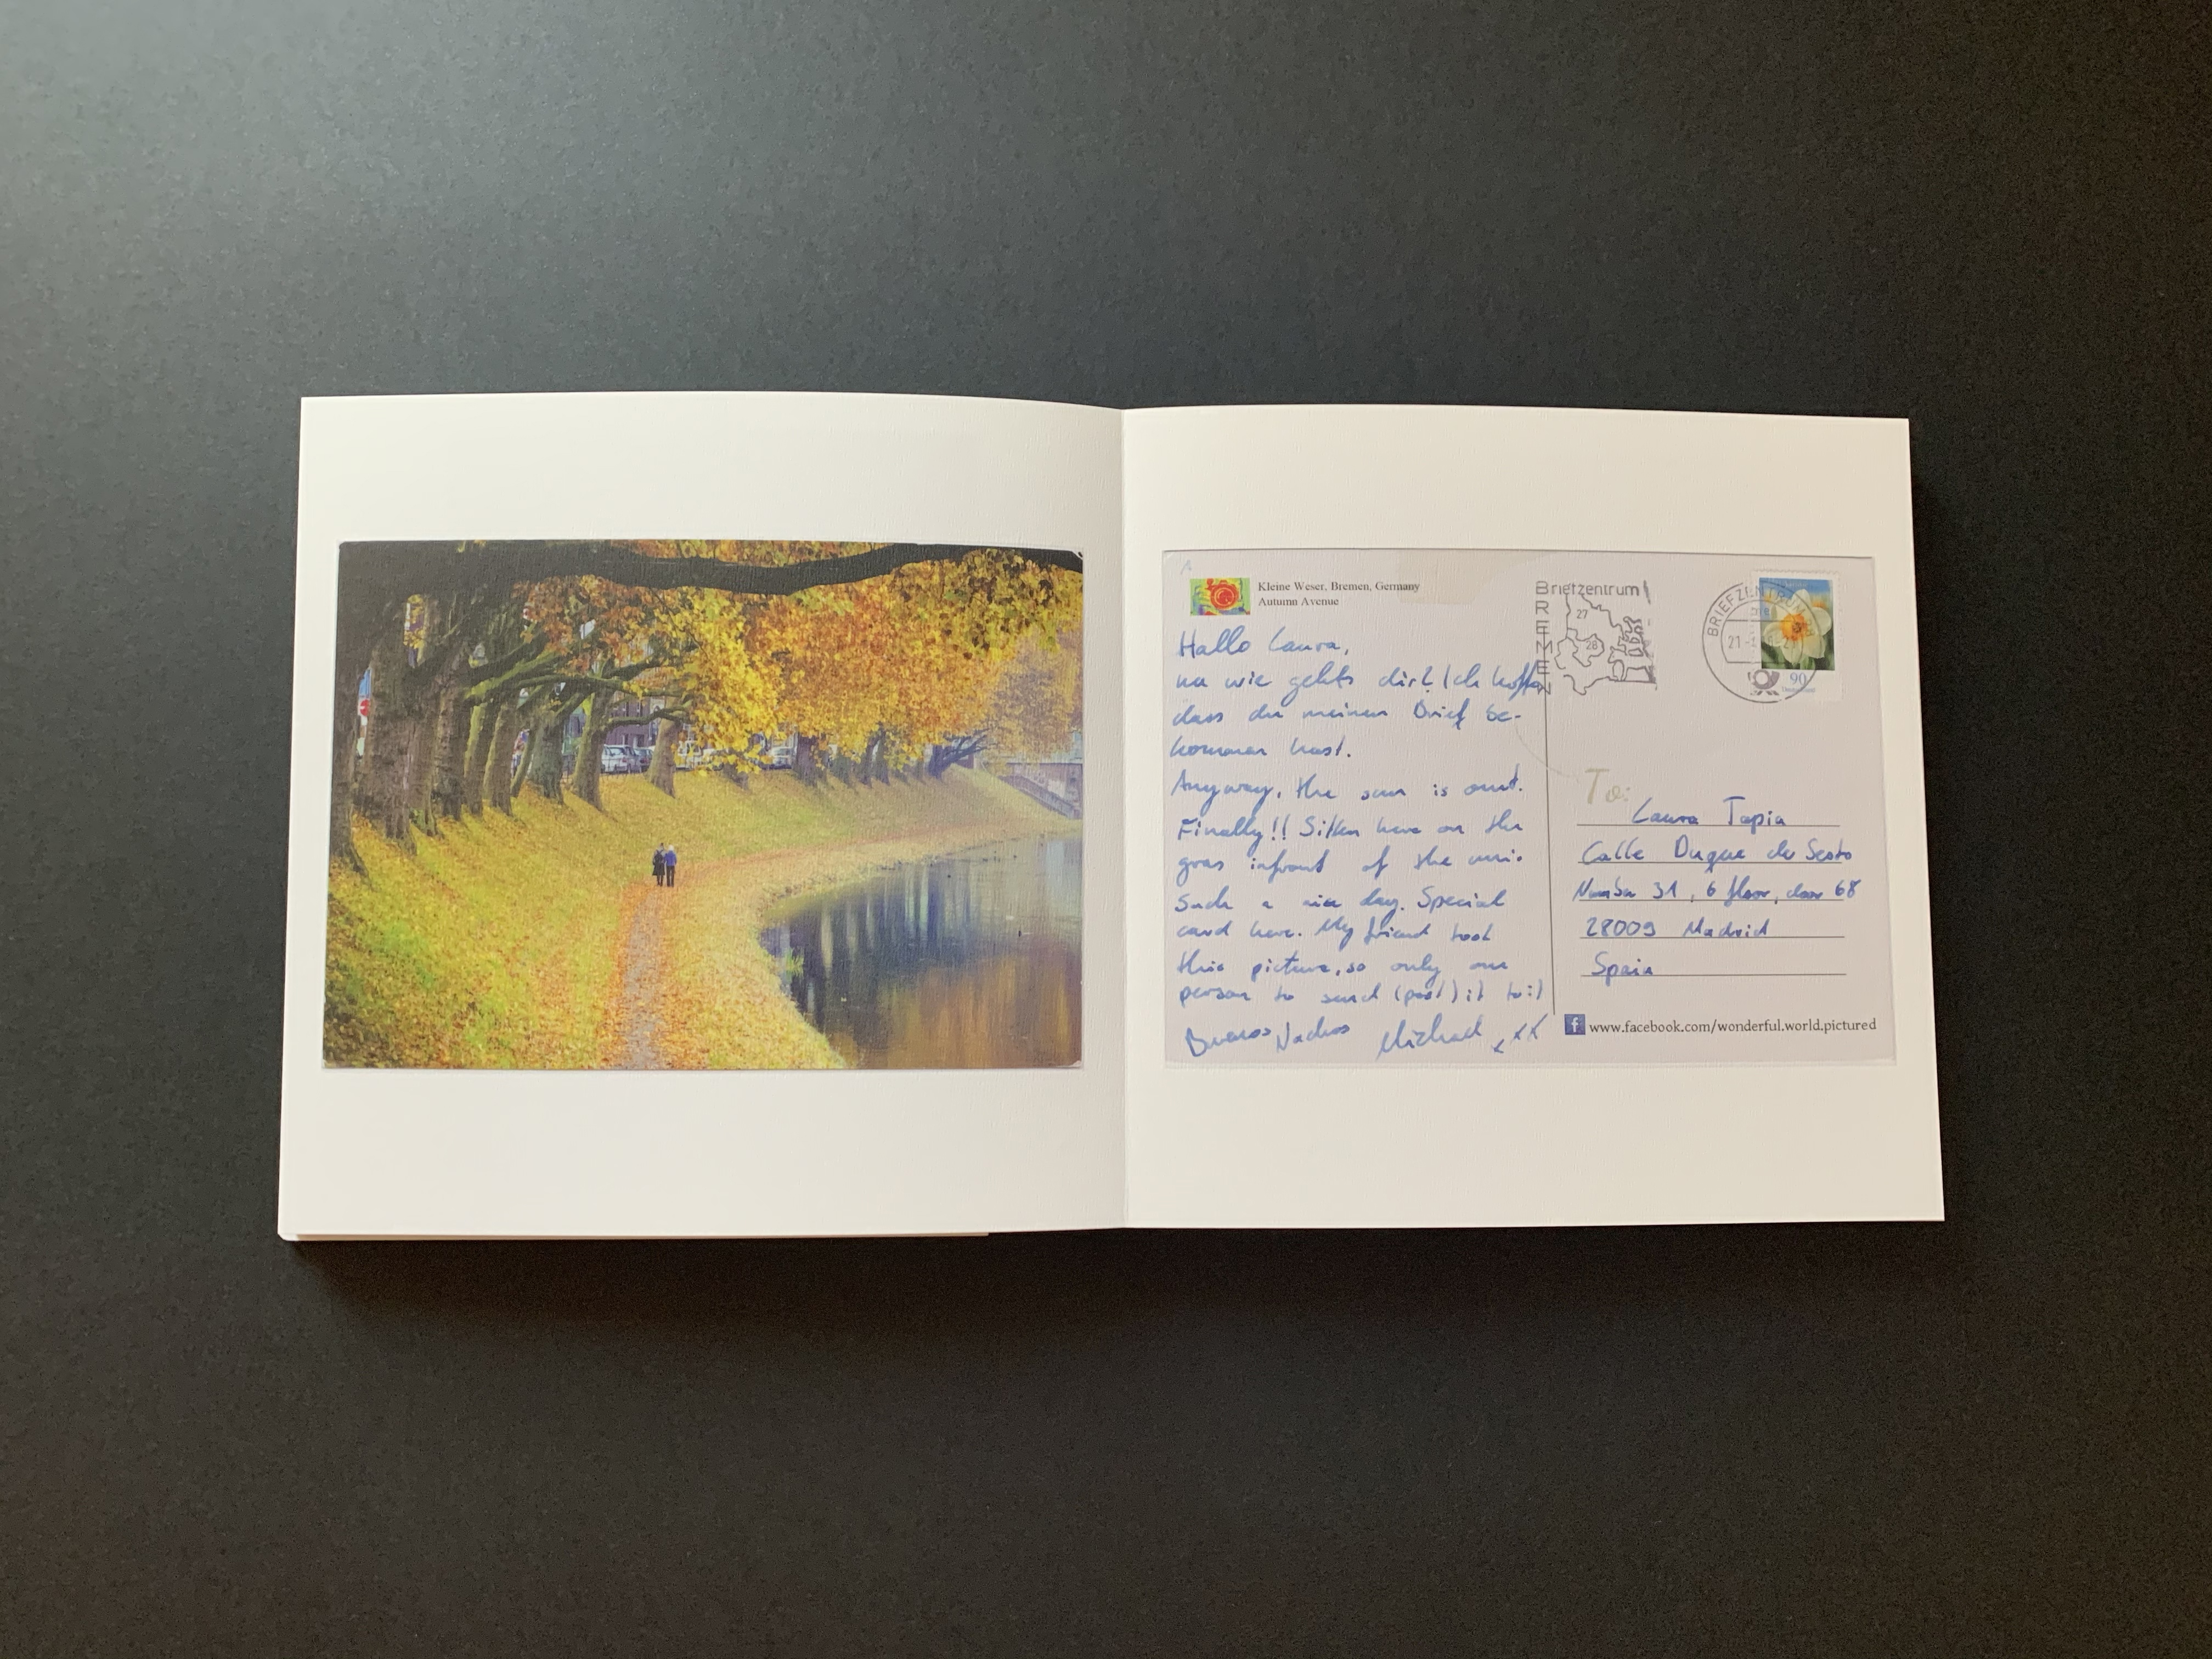 Kleine Weser, Bremen, Germany
Autumn Avenue
Hallo Laura,
na wie gehts dir? Ich hoffe,
dass du meinen Brief be-
kommen hast.
Anyway, the sun is out.
Finally!! Sitten here on the
gras infront of the uni.
Such a nice day. Special
card here. My friend took
this picture, so only one
person to send (post) it to:)
Buenos Nachos Michael
Briefzentrum
BREMEN
27
28
BRIEFZENTRUM
21
90
Deutschland
To:
Laura Tapia
Calle Duque de Sesto
Number 31, 6 floor, door 68
28009 Madrid
Spain
f www.facebook.com/wonderful.world.pictured